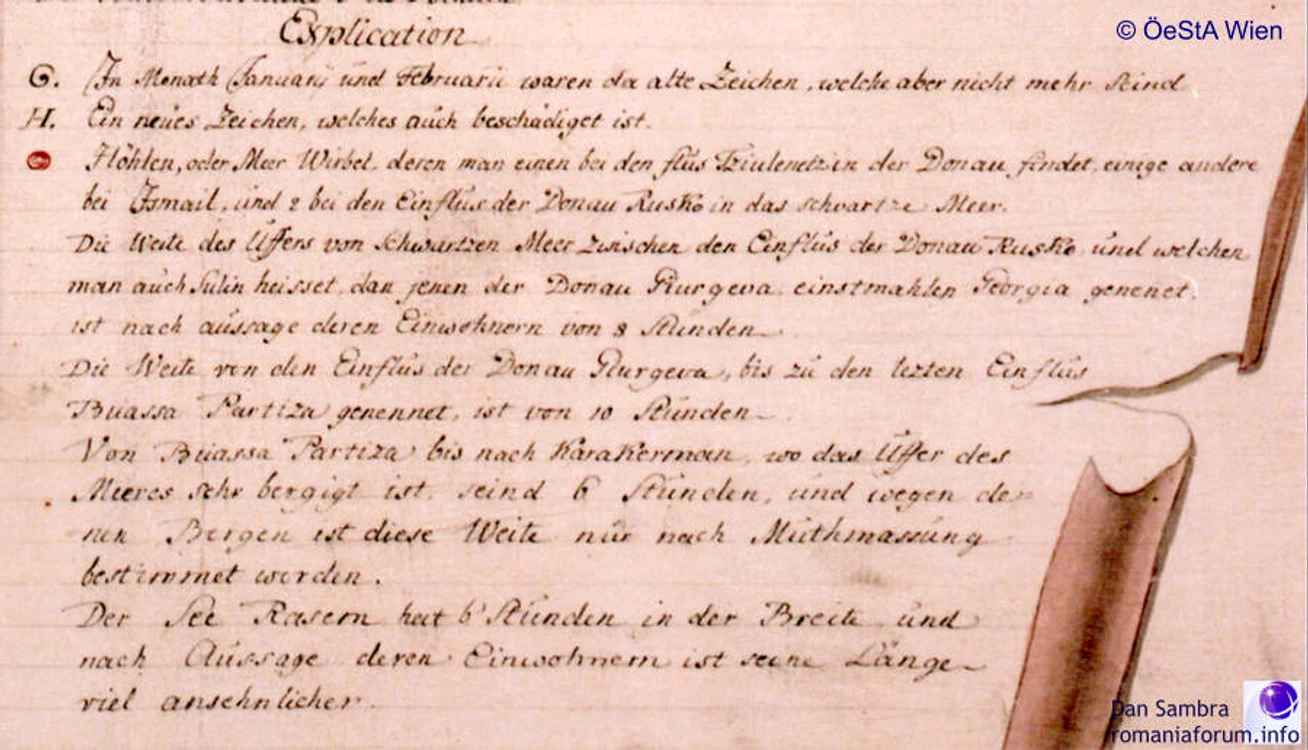 © ÖeStA Wien
Explication
G. In Monath Januarij und Februarii waren da alte Zeichen, welche aber nicht mehr seind
H. Ein neues Zeichen, welches auch beschädiget ist.
Höhlen, oder Meer Wirbel, deren man einen bei den flus in der Donau findet, einige andere
bei Ismail, und 2 bei den Einflus der Donau Rusko in das schwartze Meer.
Die Weite des Uffers von Schwartzen Meer zwischen den Einflus der Donau Rusko, und welchen
man auch Sulin heisset, dan jenen der Donau Giurgeva, einstmahlen Georgia genenet,
ist nach aussage deren Einwohnern von 8 Stunden
Die Weite von den Einflus der Donau Giurgeva, bis zu den lezten Einflus
Buassa Partiza genennet, ist von 10 Stunden
Von Buassa Partiza bis nach Karakerman, wo das Uffer des
Meeres sehr bergigt ist, seind 6 Stunden, und wegen de-
nen Bergen ist diese Weite nur nach Muthmassung
bestimmet worden.
Der See Rasem hat 6 Stunden in der Breite und
nach Aussage deren Einwohnern ist seine Länge
viel ansehnlicher.
Dan Sambra
romaniaforum.info